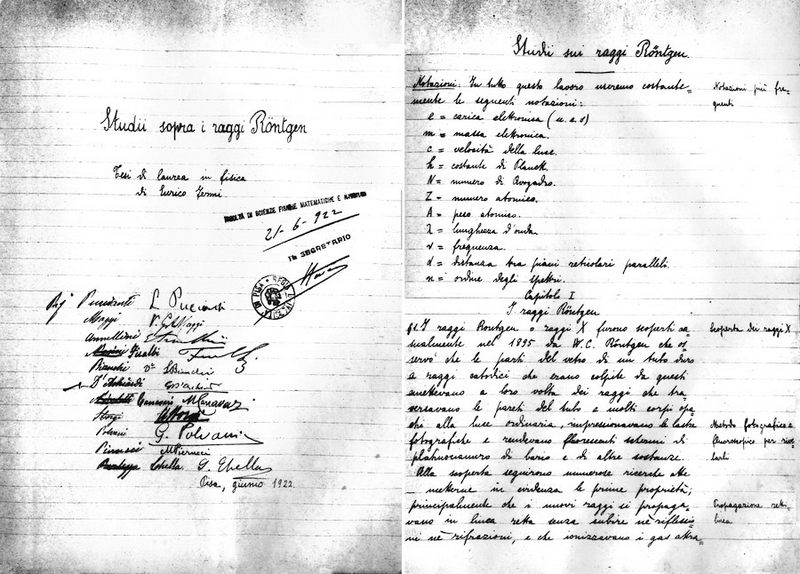 Studii sopra i raggi Röntgen
Tesi di laurea in fisica
di Enrico Fermi
FACOLTÀ DI SCIENZE FISICHE MATEMATICHE E NATURALI
21-6-922
IL SEGRETARIO
Puccianti L. Puccianti
Maggi
Bianchi L Bianchi
D'Achiardi
Canavari M Canavari
Polvani G. Polvani
Pierucci M Pierucci
G.
Pisa, giugno 1922.
Studii sui raggi Röntgen.
Notazioni: In tutto questo lavoro useremo costante=
mente le seguenti notazioni:
e = carica elettronica (u.e.s)
m = massa elettronica.
c = velocità della luce.
h = costante di Planck.
N = numero di Avogadro.
Z = numero atomico.
A = peso atomico.
λ = lunghezza d'onda.
ν = frequenza.
d = distanza tra piani reticolari paralleli.
n = ordine degli spettri.
Notazioni più fre=
quenti
Capitolo I
I raggi Röntgen
§1. I raggi Röntgen o raggi X furono scoperti ca=
sualmente nel 1895 da W.C. Röntgen che os=
servò che le parti del vetro di un tubo duro
a raggi catodici che erano colpite da questi
emettevano a loro volta dei raggi che tra=
versavano le pareti del tubo e molti corpi opa=
chi alla luce ordinaria, impressionavano le lastre
fotografiche e rendevano fluorescenti schermi di
platinocianuro di bario e di altre sostanze.
Alla scoperta seguirono numerose ricerche che
metterne in evidenza le prime proprietà;
principalmente che i nuovi raggi si propaga=
vano in linea retta senza subire nè riflessio=
ni nè rifrazioni, e che ionizzavano i gas attra=
Scoperta dei raggi X
Metodo fotografico e
fluoroscopico per rive=
larli
Propagazione retti=
linea